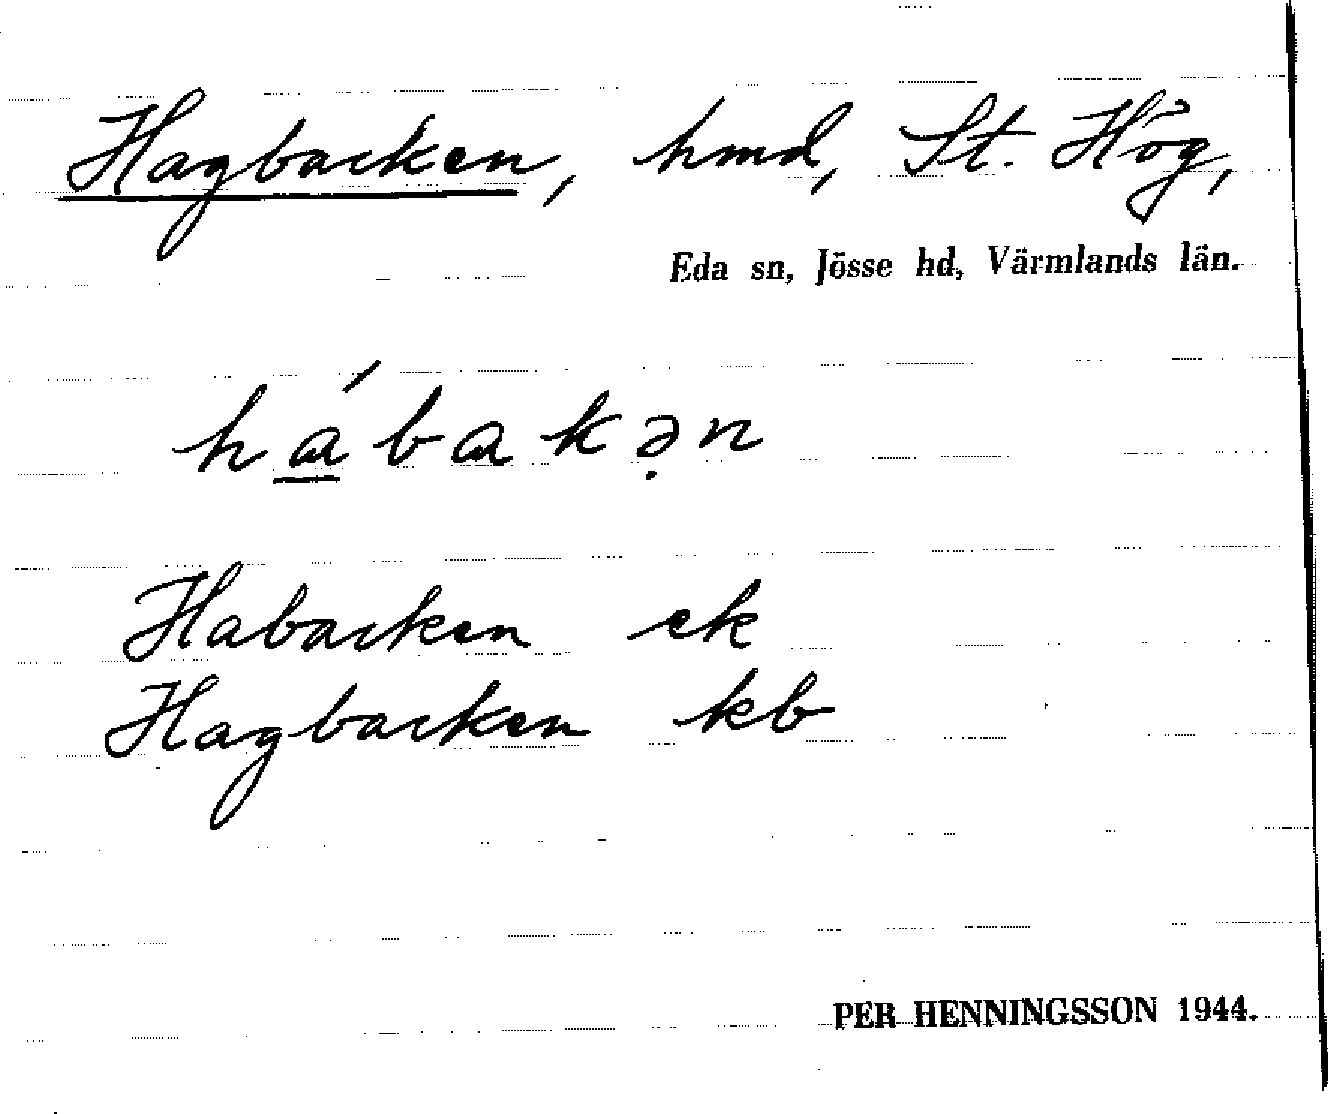 Hagbacken, hmd, St. Hög,
Eda sn, Jösse hd, Värmlands län.
hábakə̣n
Habacken ek
Hagbacken kb
PER HENNINGSSON 1944.